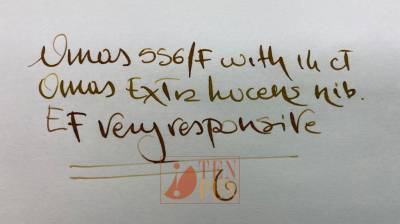 Omas 556/F with 14 ct
Omas Extra lucens nib.
EF very responsive
TEN
PEN